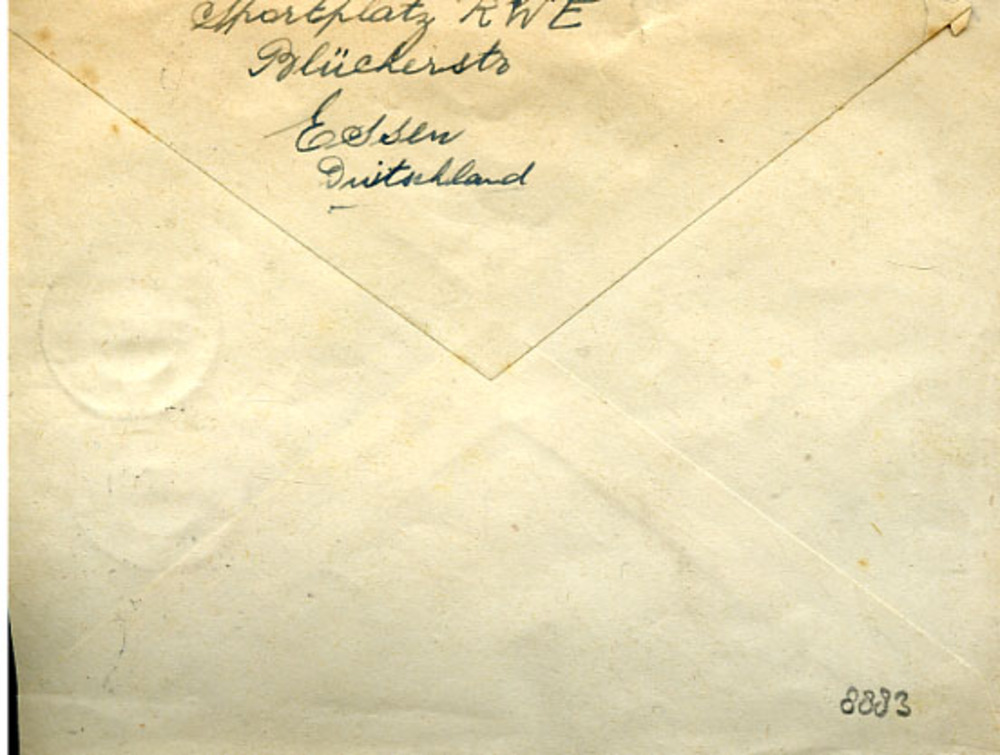 Sportplatz RWE
Blücherstr
Essen
Deutschland
8883